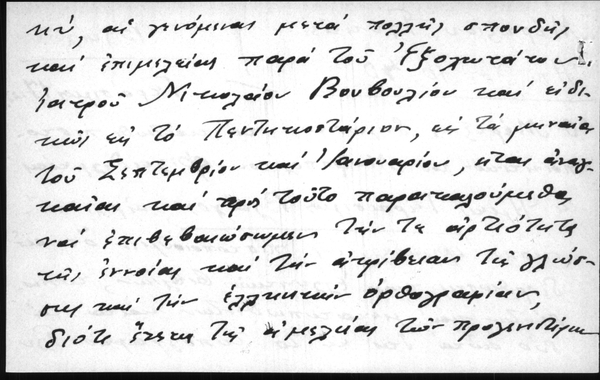 κύ, αἱ γενόμεναι μετά πολλῆς σπουδῆς
καί ἐπιμελείας παρά τοῦ Ἐξοχωτάτου
Ἰατροῦ Νικολάου Βουβουλίου καί εἰδι-
κῶς εἰς τό Πεντηκοστάριον, εἰς τά μηναῖα
τοῦ Σεπτεμβρίου καί Ἰανουαρίου, εἶναι ἀναγ-
καῖαι καί πρός τοῦτο παρακαλούμεθα
νά ἐπιβεβαιώσωμεν τήν τε ἀρτιότητα
τῆς ἐννοίας καί τήν ἀκρίβειαν τῆς γλώσ-
σης καί τήν ἑλληνικήν ὀρθογραφίαν,
διότι ἕνεκα τῆς ἀμελείας τῶν